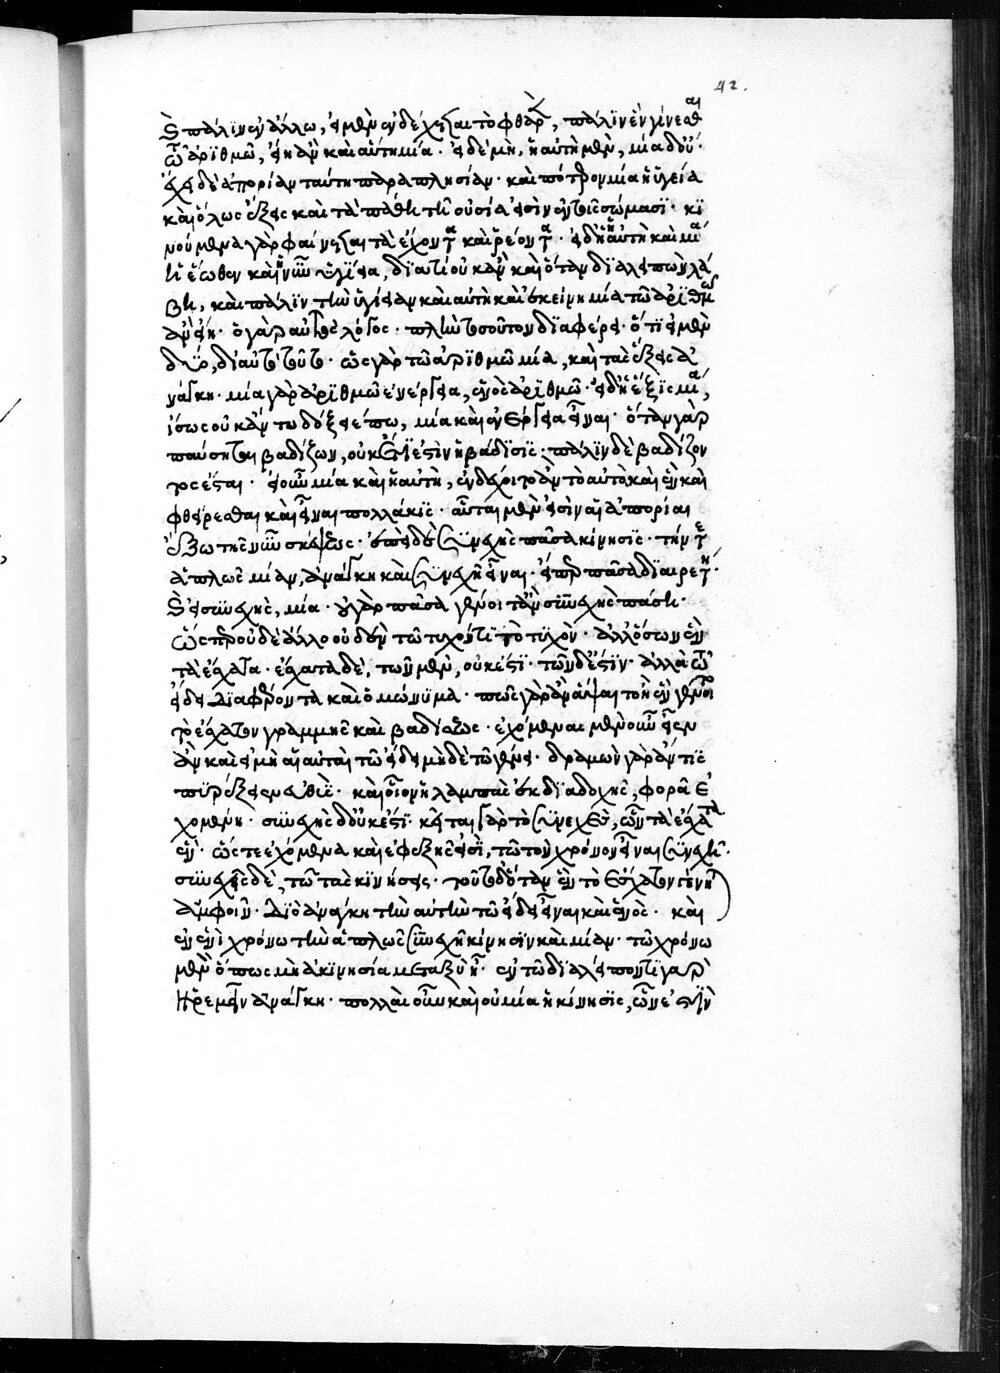 καὶ πάλιν ἐν ἄλλω, εἰ μὲν ἐνδέχεται τὸ φθαρὲν, πάλιν ἓν γίνεσθαι
τῶ ἀριθμῶ, εἴη ἂν καὶ αὕτη μία· εἰ δὲ μὴ, ἡ αὐτὴ μὲν, μία δ' οὔ·
ἔχει δὲ ἀπορίαν ταύτη παραπλησίαν· καὶ πότερον μία ἡ ὑγεία
καὶ ὅλως ἕξεις καὶ τὰ πάθη τῆ οὐσία εἰσὶν ἐν τοῖς σώμασι· κι
νούμενα γὰρ φαίνεται τὰ ἔχοντα καὶ ῥέοντα· εἰ δὴ ἡ αὐτὴ καὶ μία
ἡ ἕωθεν καὶ ἡ νῦν ὑγίεια, διατί οὐκ ἂν καὶ ὅταν διαλειπὼν λά
βη, καὶ πάλιν τὴν ὑγίειαν καὶ αὐτὴ καὶ ἐκείνη μία τῶ ἀριθμῶ
ἂν εἴη· ὁ γὰρ αὐτὸς λόγος· πλὴν τοσοῦτον διαφέρει· ὅτι εἰ μὲν
δύο, δι' αὐτὸ τοῦτο· ὡς γὰρ τῶ ἀριθμῶ μία, καὶ τὰς ἕξεις ἀ
νάγκη· μία γὰρ ἀριθμῶ ἐνέργεια, ἑνὸς ἀριθμῶ· εἰ δὴ ἡ ἕξις μία,
ἴσως οὐκ ἄν τω δόξειέ πω, μία καὶ ἐνέργεια εἶναι· ὅταν γὰρ
παύσηται βαδίζων, οὐκέτι ἐστὶν ἡ βάδισις· πάλιν δὲ βαδίζον
τος ἔσται· εἰ οὖν μία καὶ ἡ αὐτὴ, ἐνδέχοιτο ἂν τὸ αὐτὸ καὶ ἓν καὶ
φθείρεσθαι καὶ εἶναι πολλάκις· αὗται μὲν εἰσὶν αἱ ἀπορίαι
ἔξω τῆς νῦν σκέψεως· ἐπεὶ δὲ συνεχὴς πᾶσα κίνησις· τήν τε
ἁπλῶς μίαν, ἀνάγκη καὶ συνεχῆ εἶναι· εἴπερ πᾶσα διαιρετή·
καὶ εἰ συνεχὴς, μία· οὐ γὰρ πᾶσα γένοιτ' ἂν συνεχὴς πάση·
ὥσπερ οὐδὲ ἄλλο οὐδὲν τῶ τυχόντι τὸ τυχὸν· ἀλλ' ὅσων ἓν
τὰ ἔσχατα· ἔσχατα δὲ, τῶν μὲν, οὐκ ἔστι· τῶν δ' ἔστιν· ἀλλὰ τῶ
εἴδει διαφέροντα καὶ ὁμώνυμα· πῶς γὰρ ἂν ἅψαιτο ἢ ἓν γένοιτο
τὸ ἔσχατον γραμμῆς καὶ βαδίσεως· ἐχόμεναι μὲν οὖν εἶεν
ἂν καὶ εἰ μὴ αἱ αὐταὶ τῶ εἴδει μηδὲ τῶ γένει· δραμὼν γὰρ ἄν τις
πυρέξειεν εὐθὺς· καὶ οἷον ἡ λαμπὰς ἐκ διαδοχῆς, φορὰ ἐ
χομένη· συνεχὴς δ' οὐκ ἔστι· κεῖται γὰρ τὸ συνεχὲς, ὧν τὰ ἔσχατα
ἓν· ὥστε ἐχόμεναι καὶ ἐφεξῆς εἰσὶ, τῶ τὸν χρόνον εἶναι συνεχῆ·
συνεχὲς δὲ, τῶ τὰς κινήσεις· τοῦτο δ' ὅταν ἓν τὸ ἔσχατον γένηται
ἀμφοῖν· διὸ ἀνάγκη τὴν αὐτὴν τῶ εἴδει εἶναι καὶ ἑνὸς· καὶ
ἐν ἑνὶ χρόνω τὴν ἁπλῶς συνεχῆ κίνησιν καὶ μίαν· τῶ χρόνω
μὲν ὅπως μὴ ἀκινησία μεταξὺ ἦ· ἐν τῶ διαλείποντι γὰρ
ἠρεμεῖν ἀνάγκη· πολλαὶ οὖν καὶ οὐ μία ἡ κίνησις, ὧν ἐστὶν